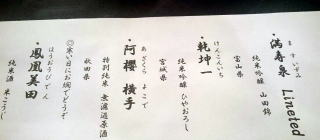 ますいずみ
・満寿泉 Lineted
純米吟醸 山田錦
富山県
けんこんいち
・乾坤一
純米吟醸 ひやおろし
宮城県
あざくら よこて
・阿櫻 横手
特別純米 無濾過原酒
秋田県
◎寒い日にお燗でどうぞ
ほうおうびでん
・鳳凰美田
純米酒 米こうじ